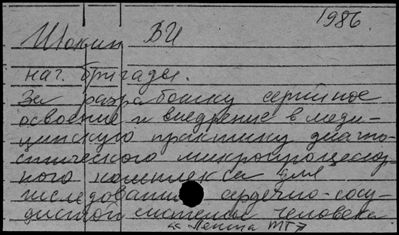 1986.
Шокин ВИ
нач. бригады.
За разработку серийное
освоение и внедрение в меди-
цинскую практику диагно-
стического микропроцессор-
ного комплекса для
исследования сердечно-сосу-
дистой системы человека
"Лента МТ"